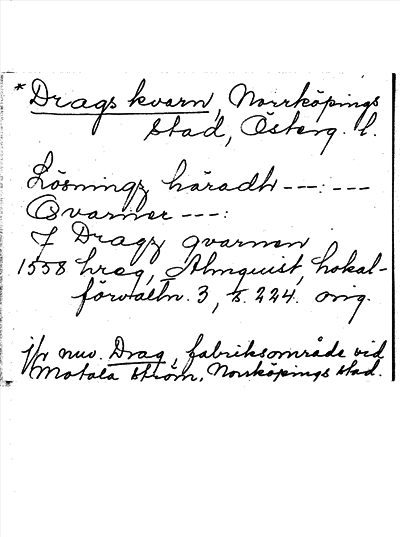 * Drags kvarn, Norrköpings
stad, Österg. l.
Lösningz häradh ---:---
Qvarner ---:
J Dragz qvarnen
1558 hreg, Almquist, Lokal-
förvaltn. 3, s. 224. orig.
jfr nuv. Drag, fabriksområde vid
Motala ström, Norrköpings stad.